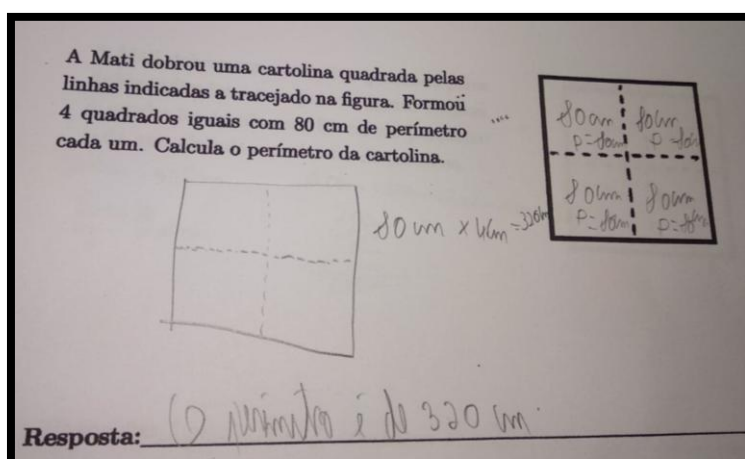 A Mati dobrou uma cartolina quadrada pelas
linhas indicadas a tracejado na figura. Formou
4 quadrados iguais com 80 cm de perímetro
cada um. Calcula o perímetro da cartolina.
80cm 80cm
P=80cm P=80cm
80cm 80cm
P=80cm P=80cm
80 cm x 4cm =320cm
Resposta: O perímetro é de 320 cm.